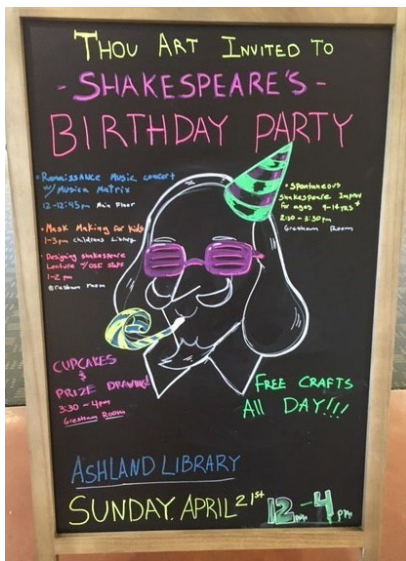 THOU ART INVITED TO
- SHAKESPEARE'S -
BIRTHDAY PARTY
• Renaissance Music concert
w/ Musica Matrix
12-12:45pm Main Floor
• Mask Making for kids
1-3pm Childrens Library
• Designing Shakespeare
Lecture w/ OSF staff
1-2 pm
Gresham room
• Spontaneous
Shakespeare Improv
for ages 9-14 yrs
2:30 - 3:30pm
Gresham Room
CUPCAKES
&
PRIZE DRAWING!
3:30 - 4pm
Gresham Room
FREE CRAFTS
All DAY!!!
ASHLAND LIBRARY
SUNDAY. APRIL 21st 12pm-4pm